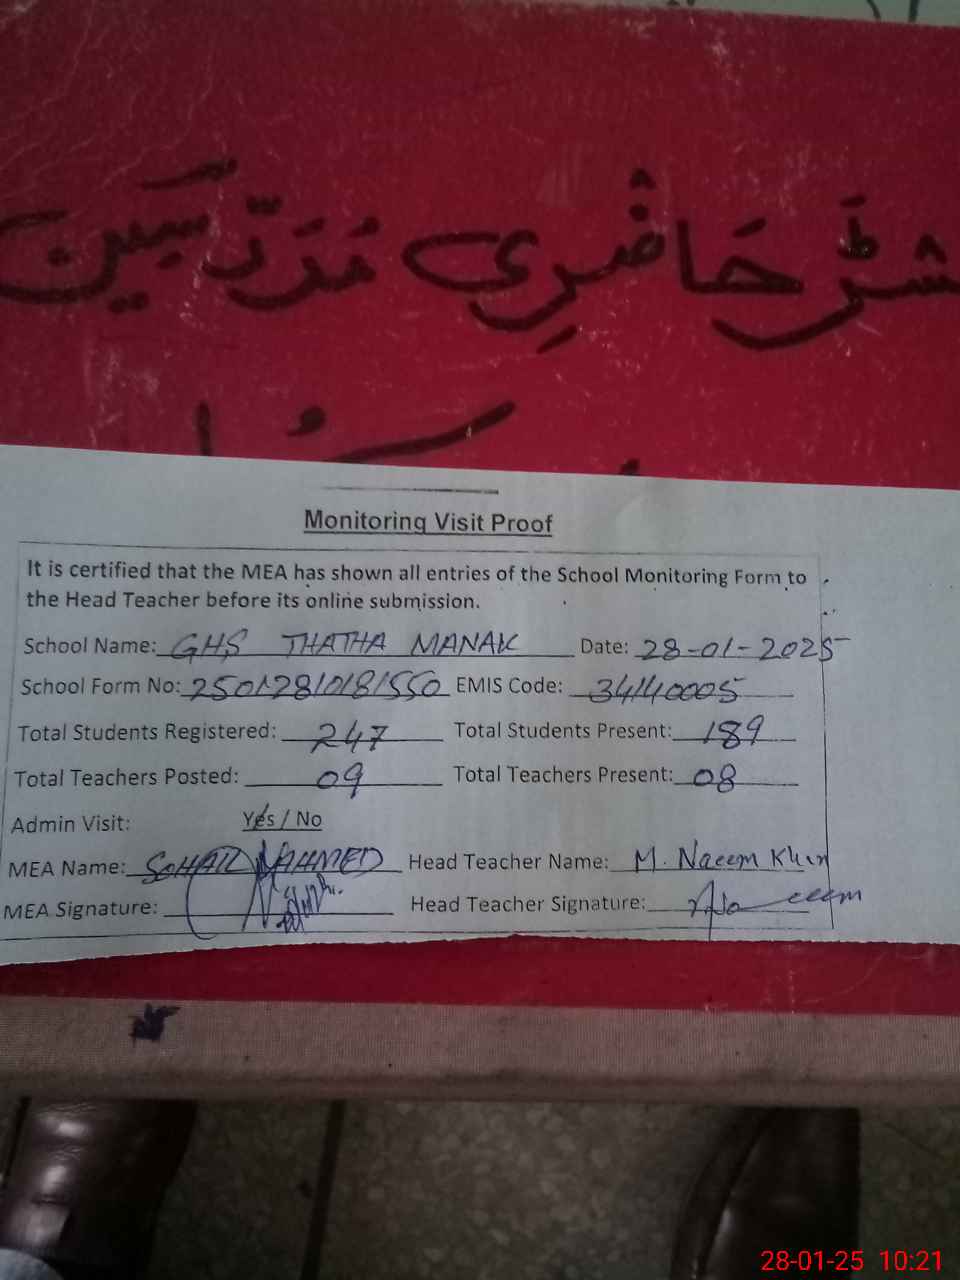 رجسٹر حاضری مدرسین
Monitoring Visit Proof
It is certified that the MEA has shown all entries of the School Monitoring Form to
the Head Teacher before its online submission.
School Name: GHS THATHA MANAK Date: 28-01-2025
School Form No: 25012810181550 EMIS Code: 34140005
Total Students Registered: 247 Total Students Present: 189
Total Teachers Posted: 09 Total Teachers Present: 08
Admin Visit: Yes / No
MEA Name: SOHAIL AHMED Head Teacher Name: M. Naeem Khan
MEA Signature: Head Teacher Signature: Naeem
28-01-25 10:21